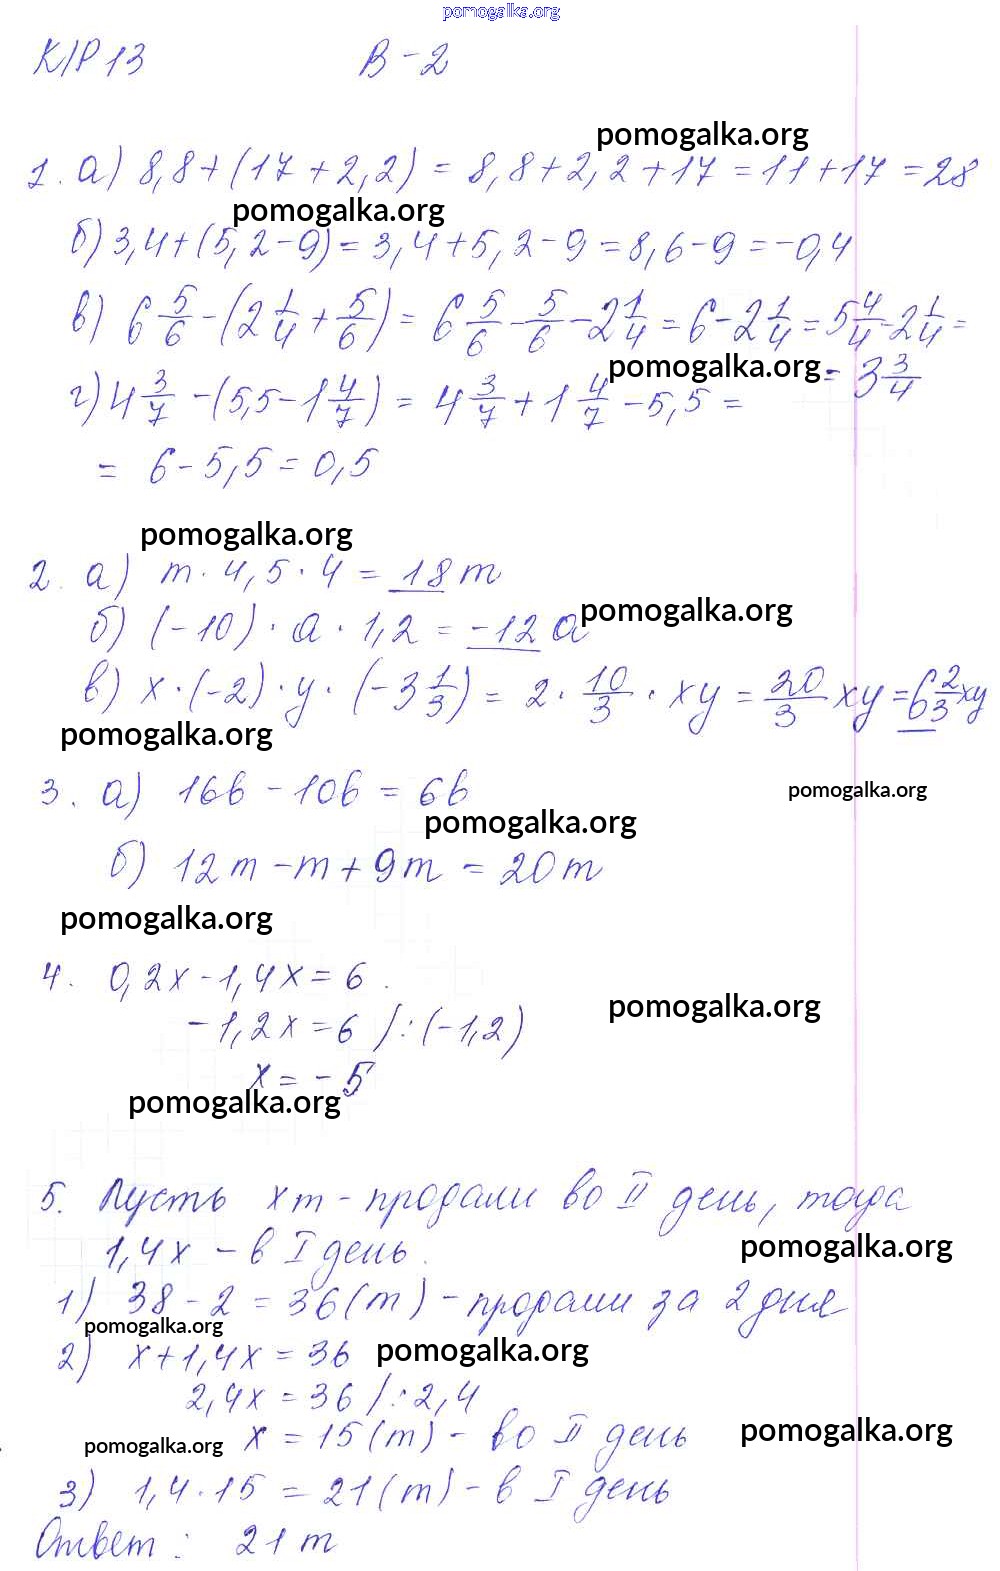 pomogalka.org
К/Р 13 В-2
pomogalka.org
1. а) 8,8+(17+2,2) = 8,8+2,2+17 = 11+17 = 28
pomogalka.org
б) 3,4+(5,2-9) = 3,4+5,2-9 = 8,6-9 = -0,4
в) 6 5/6 - (2 1/4 + 5/6) = 6 5/6 - 5/6 - 2 1/4 = 6 - 2 1/4 = 5 4/4 - 2 1/4 =
pomogalka.org = 3 3/4
г) 4 3/7 - (5,5 - 1 4/7) = 4 3/7 + 1 4/7 - 5,5 =
= 6 - 5,5 = 0,5
pomogalka.org
2. а) m · 4,5 · 4 = 18m
pomogalka.org
б) (-10) · a · 1,2 = -12a
в) x · (-2) · y · (-3 1/3) = 2 · 10/3 · xy = 20/3 xy = 6 2/3 xy
pomogalka.org
3. а) 16b - 10b = 6b
pomogalka.org
pomogalka.org
б) 12m - m + 9m = 20m
pomogalka.org
4. 0,2x - 1,4x = 6.
pomogalka.org
-1,2x = 6 /:(-1,2)
x = -5
pomogalka.org
5. Пусть x т - продали во II день, тогда
1,4x - в I день.
pomogalka.org
1) 38 - 2 = 36 (т) - продали за 2 дня
pomogalka.org
2) x + 1,4x = 36 pomogalka.org
2,4x = 36 /:2,4
x = 15 (т) - во II день
pomogalka.org
pomogalka.org
3) 1,4 · 15 = 21 (т) - в I день
Ответ: 21 т